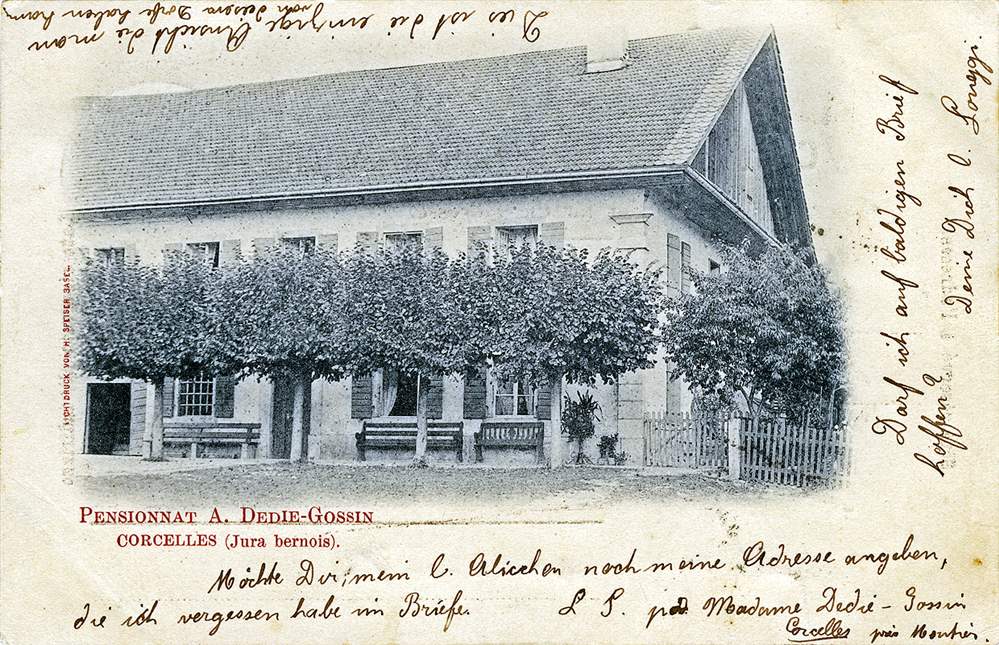 Dies ist die einzige Ansicht die man
von diesem Dorfe haben kann
LICHTDRUCK VON H. SPEISER BASEL
Darf ich auf baldigen Brief
hoffen?
Deine Dich l.
PENSIONNAT A. DEDIE-GOSSIN
CORCELLES (Jura bernois).
Möchte Dir, mein l. noch meine Adresse angeben,
die ich vergessen habe im Briefe. Madame Dedie-Gossin
Corcelles près Moutier.